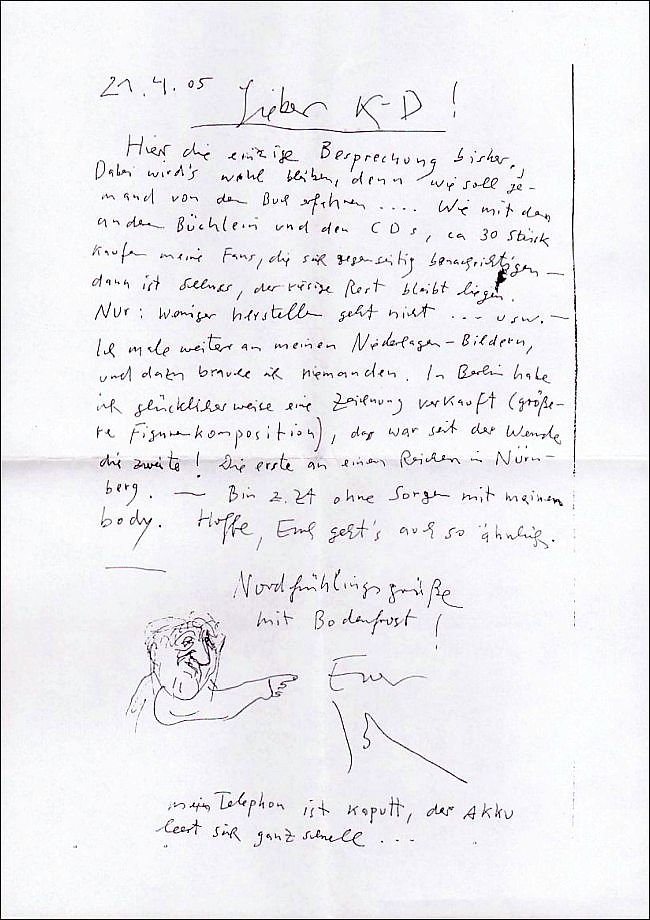 21.4.05 Lieber K-D!
Hier die einzige Besprechung bisher,
Dabei wird's wohl bleiben, denn wie soll je-
mand von dem Buch erfahren .... Wie mit den
anderen Büchlein und den CDs, ca 30 Stück
kaufen meine Fans, die sich gegenseitig benachrichtigen —
dann ist Schluss, der riesige Rest bleibt liegen.
Nur: weniger herstellen geht nicht ... usw. —
Ich male weiter an meinen Niederlagen-Bildern,
und dazu brauche ich niemanden. In Berlin habe
ich glücklicherweise eine Zeichnung verkauft (größe-
re Figurenkomposition), das war seit der Wende
die zweite! Die erste an einen Reichen in Nürn-
berg. — Bin z.Zt ohne Sorgen mit meinem
body. Hoffe, Euch geht's auch so ähnlich.
Nordfrühlingsgrüße
mit Bodenfrost!
Euer
mein Telephon ist kaputt, der Akku
leert sich ganz schnell ...